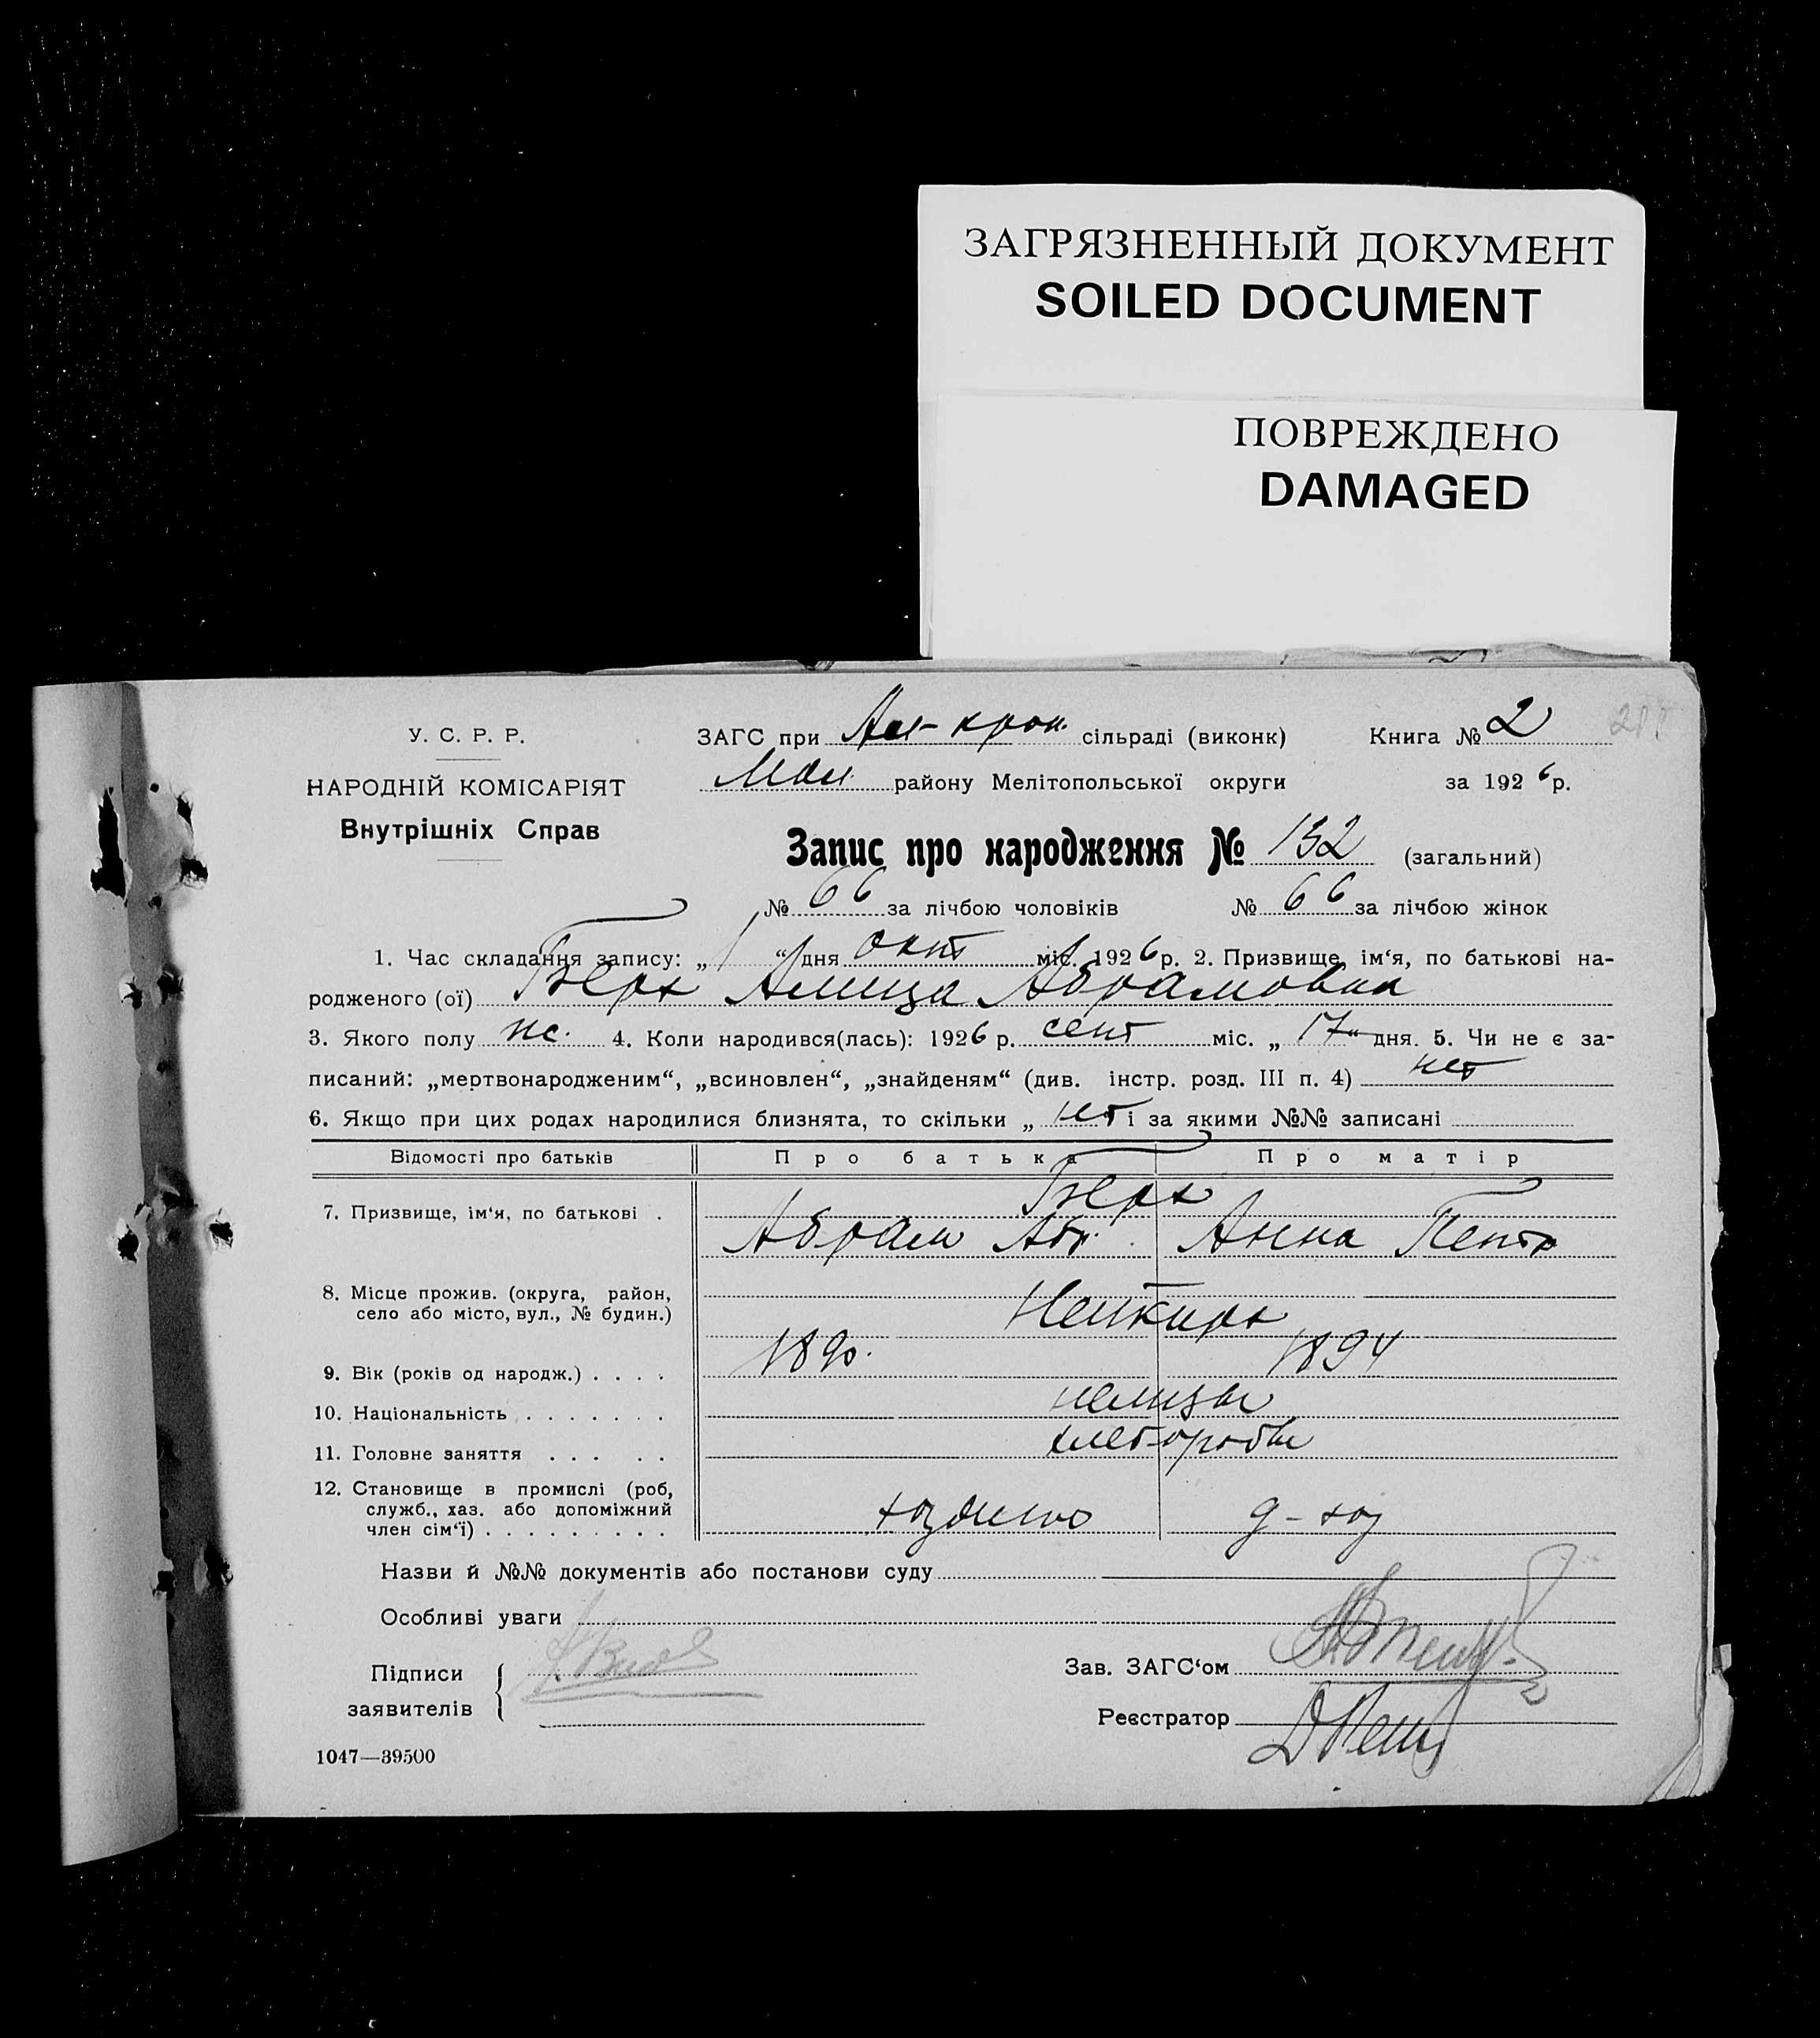 ЗАГРЯЗНЕННЫЙ ДОКУМЕНТ
SOILED DOCUMENT
ПОВРЕЖДЕНО
DAMAGED
У. С. Р. Р.
НАРОДНІЙ КОМІСАРІЯТ
Внутрішніх Справ
ЗАГС при сільраді (виконк) Книга № 2
Мол. району Мелітопольської округи за 1926 р.
Запис про народження № 132 (загальний)
№ 66 за лічбою чоловіків № 66 за лічбою жінок
1. Час складання запису: „ 1 “ дня окт міс. 1926 р. 2. Призвище, ім‘я, по батькові на-
родженого (ої) Берг Абрамовна
3. Якого полу ж. 4. Коли народився(лась): 1926 р. сент міс. „ 17 “ дня. 5. Чи не є за-
писаний: „мертвонародженим“, „всиновлен“, „знайденям“ (див. інстр. розд. III п. 4) нет
6. Якщо при цих родах народилися близнята, то скільки „ нет і за якими №№ записані
Відомості про батьків Про батька Про матір
7. Призвище, ім‘я, по батькові . Берг
Абрам Абр. Анна Петр
8. Місце прожив. (округа, район,
село або місто, вул., № будин.) Нейкирх
9. Вік (років од народж.) . . . . 1890. 1894
10. Національність . . . . . . . немцы
11. Головне заняття . . . . . хлеборобы
12. Становище в промислі (роб,
служб., хаз. або допоміжний
член сім‘ї) . . . . . . . . . хозяино д-хоз
Назви й №№ документів або постанови суду
Особливі уваги
Підписи
заявителів
Зав. ЗАГС‘ом
Реєстратор
1047—39500